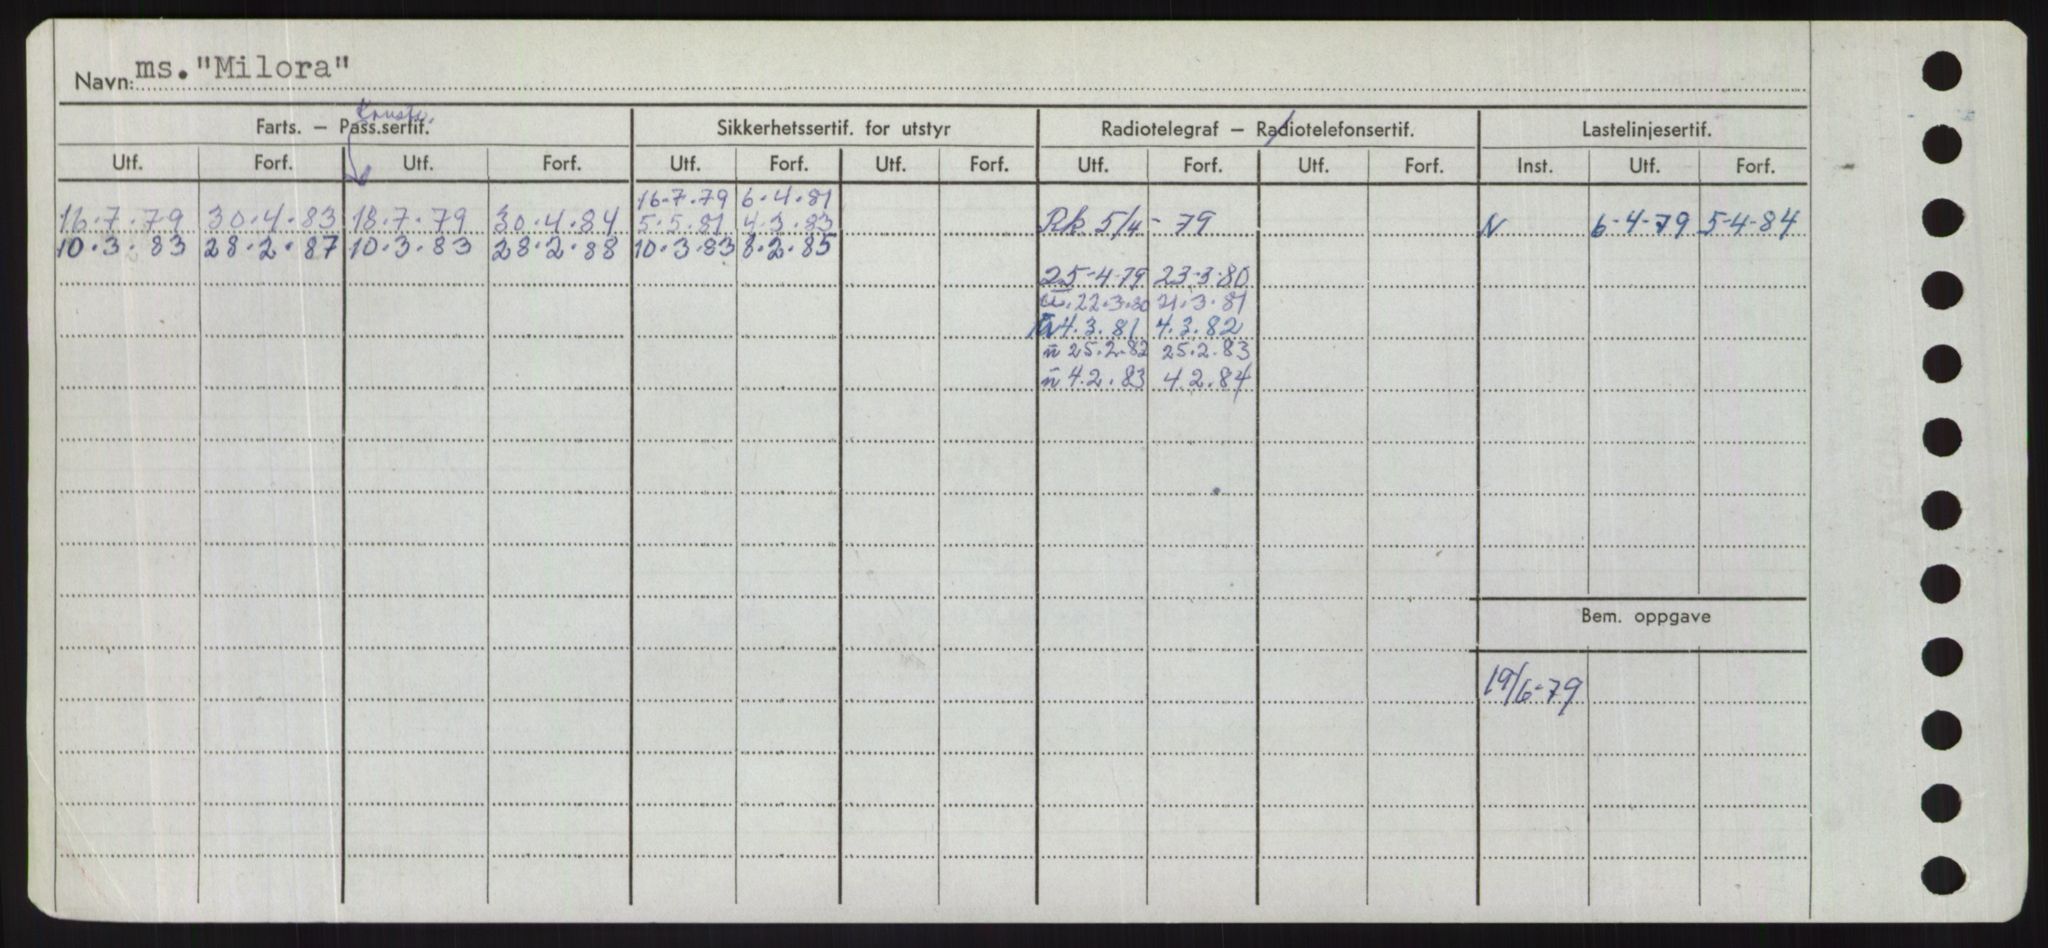 Navn: ms. "Milora"
Konstr.
Farts. – Pass.sertif. Sikkerhetssertif. for utstyr Radiotelegraf – Radiotelefonsertif. Lastelinjesertif.
Utf. Forf. Utf. Forf. Utf. Forf. Utf. Forf. Utf. Forf. Utf. Forf. Inst. Utf. Forf.
16.7.79 6.4.81
16.7.79 30.4.83 18.7.79 30.4.84 5.5.81 4.3.83 Rk 5/4-79 N 6-4-79 5-4-84
10.3.83 28.2.87 10.3.83 28.2.88 10.3.83 8.2.85
25-4-79 23-3-80
22.3.80 21.3.81
4.3.81 4.3.82
n 25.2.82 25.2.83
n 4.2.83 4.2.84
Bem. oppgave
19/6-79